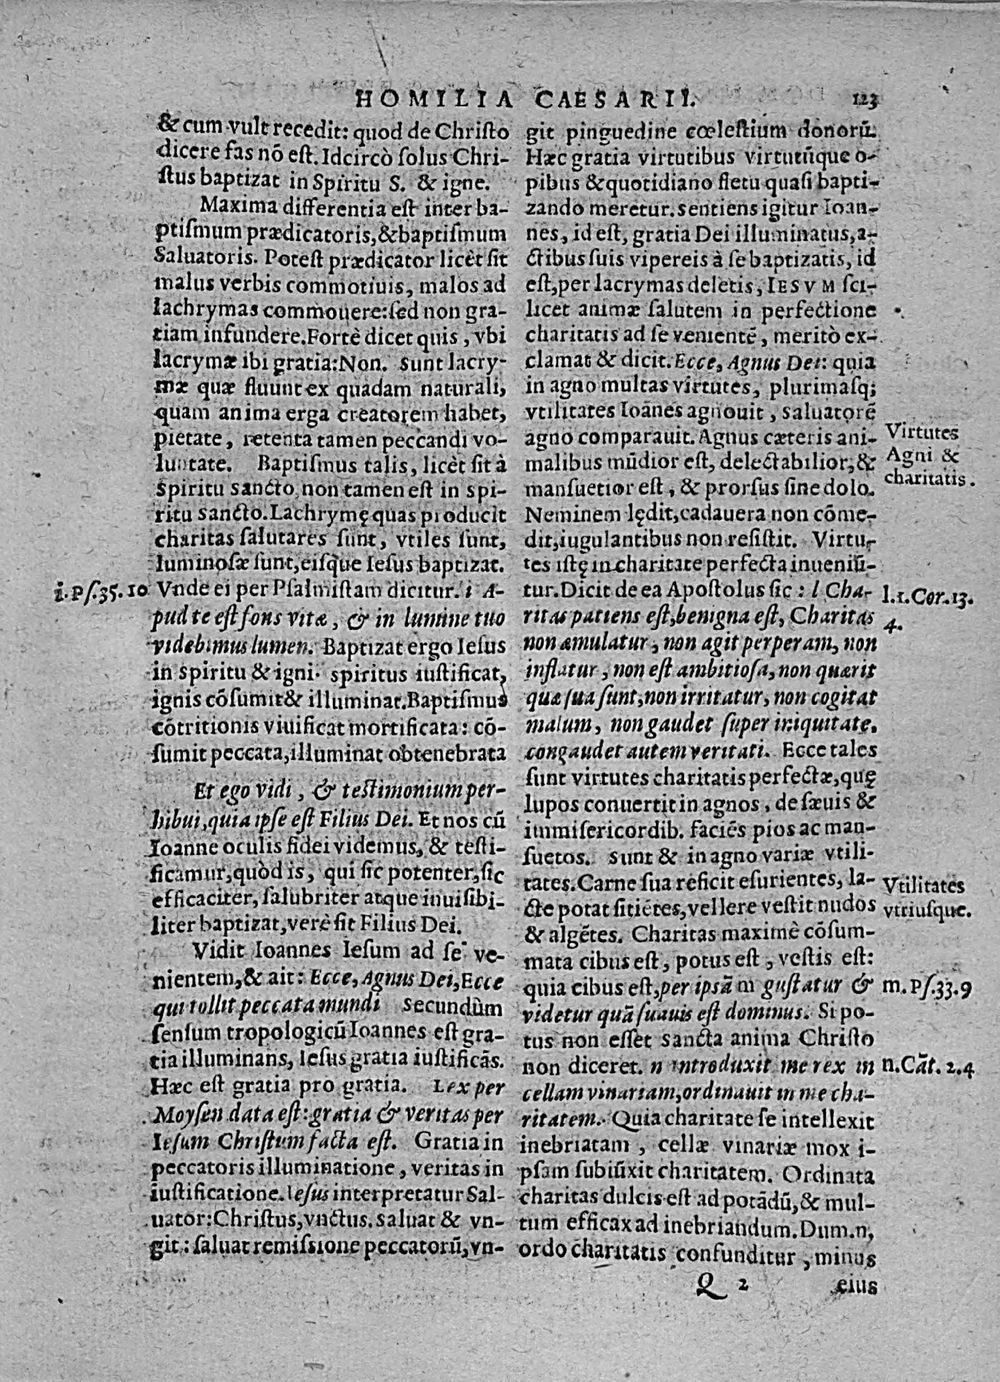 HOMILIA CAESARII. 123
& cum vult recedit: quod de Christo
dicere fas nõ est. Idcircò solus Chri-
stus baptizat in Spiritu S. & igne.
Maxima differentia est inter ba-
ptismum prædicatoris, & baptismum
Saluatoris. Potest prædicator licèt sit
malus verbis commotiuis, malos ad
lachrymas commouere: sed non gra-
tiam infundere. Fortè dicet quis, vbi
lacrymæ ibi gratia: Non. sunt lacry-
mæ quæ fluunt ex quadam naturali,
quam anima erga creatorem habet,
pietate, retenta tamen peccandi vo-
luntate. Baptismus talis, licèt sit à
spiritu sancto, non tamen est in spi-
ritu sancto. Lachrymę quas producit
charitas salutares sunt, vtiles sunt,
luminosæ sunt, eisque Iesus baptizat.
i. Ps. 35. 10 Vnde ei per Psalmistam dicitur. i A-
pud te est fons vitæ, & in lumine tuo
videbimus lumen. Baptizat ergo Iesus
in spiritu & igni. spiritus iustificat,
ignis cõsumit & illuminat. Baptismus
cõtritionis viuificat mortificata: cõ-
sumit peccata, illuminat obtenebrata
Et ego vidi, & testimonium per-
hibui, quia ipse est Filius Dei. Et nos cũ
Ioanne oculis fidei videmus, & testi-
ficamur, quòd is, qui sic potenter, sic
efficaciter, salubriter atque inuisibi-
liter baptizat, verè sit Filius Dei.
Vidit Ioannes Iesum ad se ve-
nientem, & ait: Ecce, Agnus Dei, Ecce
qui tollit peccata mundi secundùm
sensum tropologicũ Ioannes est gra-
tia illuminans, Iesus gratia iustificãs.
Hæc est gratia pro gratia. Lex per
Moysen data est: gratia & veritas per
Iesum Christum facta est. Gratia in
peccatoris illuminatione, veritas in
iustificatione. Iesus interpretatur Sal-
uator: Christus, vnctus. saluat & vn-
git: saluat remissione peccatorũ, vn-
git pinguedine cœlestium donorũ.
Hæc gratia virtutibus virtutũque o-
pibus & quotidiano fletu quasi bapti-
zando meretur. sentiens igitur Ioan-
nes, id est, gratia Dei illuminatus, a-
ctibus suis vipereis à se baptizatis, id
est, per lacrymas deletis, IESVM sci-
licet animæ salutem in perfectione
charitatis ad se venientẽ, meritò ex-
clamat & dicit. Ecce, Agnus Dei: quia
in agno multas virtutes, plurimasq;
vtilitates Ioãnes agnouit, saluatorẽ
agno comparauit. Agnus cæteris ani-
malibus mũdior est, delectabilior, &
mansuetior est, & prorsus sine dolo.
Neminem lędit, cadauera non cõme-
dit, iugulantibus non resistit. Virtu-
tes istę in charitate perfecta inueniũ-
tur. Dicit de ea Apostolus sic: l Cha-
ritas patiens est, benigna est, Charitas
non æmulatur, non agit perperam, non
inflatur, non est ambitiosa, non quærit
quæ sua sunt, non irritatur, non cogitat
malum, non gaudet super iniquitate,
congaudet autem veritati. Ecce tales
sunt virtutes charitatis perfectæ, quę
lupos conuertit in agnos, de sæuis &
immisericordib. faciẽs pios ac man-
suetos. sunt & in agno variæ vtili-
tates. Carne sua reficit esurientes, la-
cte potat sitiẽtes, vellere vestit nudos
& algẽtes. Charitas maximè cõsum-
mata cibus est, potus est, vestis est:
quia cibus est, per ipsã m gustatur &
videtur quã suauis est dominus. Si po-
tus non esset sancta anima Christo
non diceret. n introduxit me rex in
cellam vinariam, ordinauit in me cha-
ritatem. Quia charitate se intellexit
inebriatam, cellæ vinariæ mox i-
psam subiũxit charitatem. Ordinata
charitas dulcis est ad potãdũ, & mul-
tum efficax ad inebriandum. Dum. n,
ordo charitatis confunditur, minus
Virtutes
Agni &
charitatis.
l. 1. Cor. 13.
4.
Vtilitates
vtriusque.
m. Ps. 33. 9
n. Cãt. 2. 4
Q 2 eius